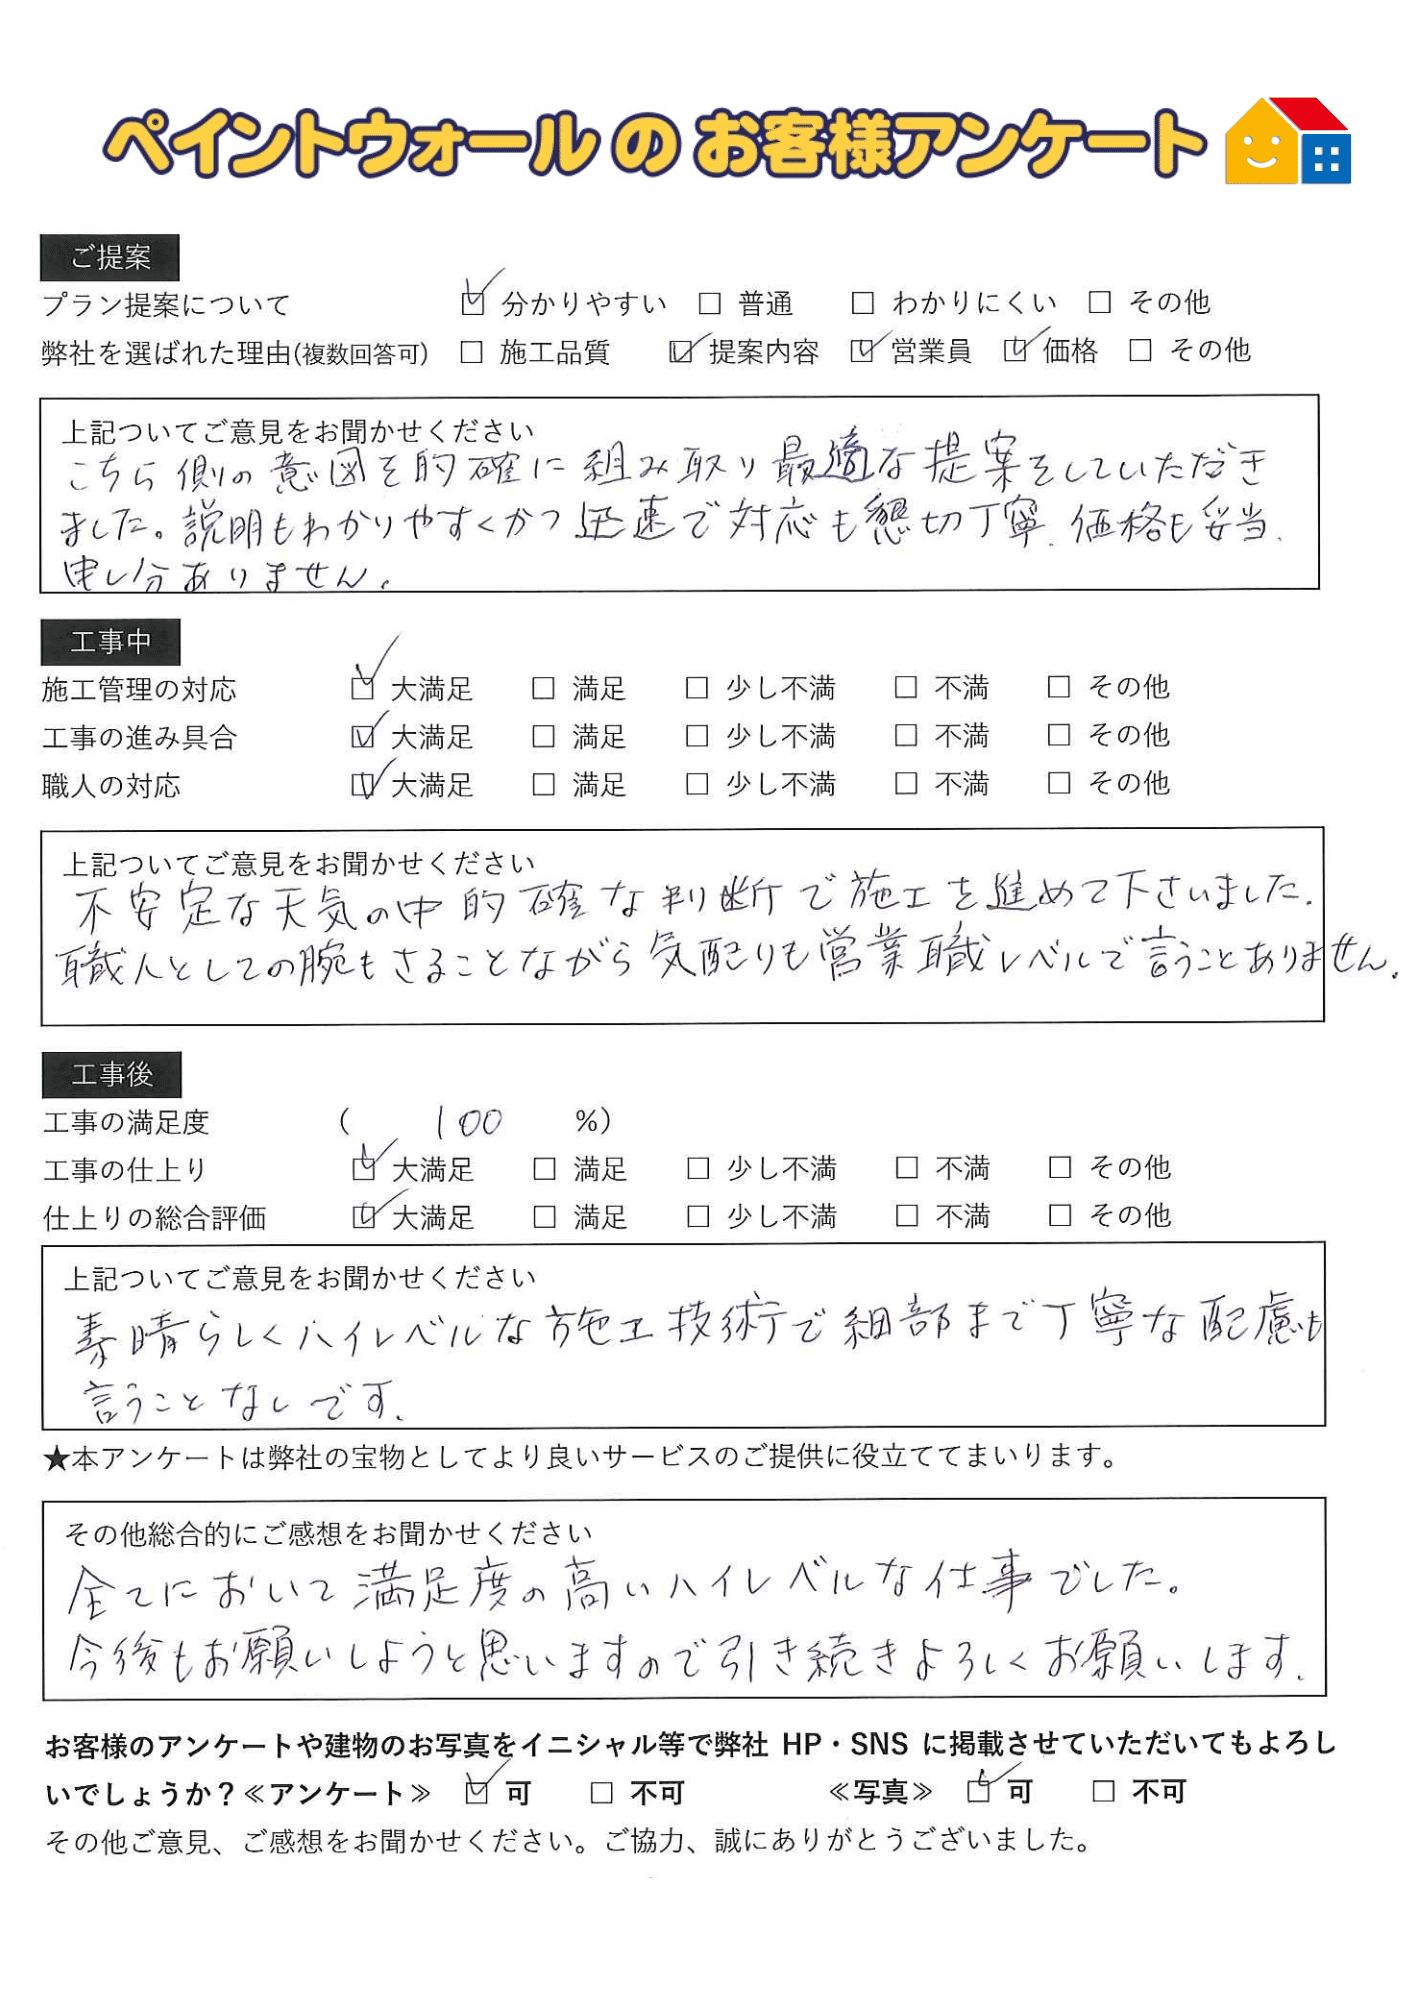 ペイントウォール の お客様アンケート
ご提案
プラン提案について ☑ 分かりやすい ☐ 普通 ☐ わかりにくい ☐ その他
弊社を選ばれた理由(複数回答可) ☐ 施工品質 ☑ 提案内容 ☑ 営業員 ☑ 価格 ☐ その他
上記ついてご意見をお聞かせください
こちら側の意図を的確に組み取り最適な提案をしていただき
ました。説明もわかりやすくかつ迅速で対応も懇切丁寧、価格も妥当、
申し分ありません。
工事中
施工管理の対応 ☑ 大満足 ☐ 満足 ☐ 少し不満 ☐ 不満 ☐ その他
工事の進み具合 ☑ 大満足 ☐ 満足 ☐ 少し不満 ☐ 不満 ☐ その他
職人の対応 ☑ 大満足 ☐ 満足 ☐ 少し不満 ☐ 不満 ☐ その他
上記ついてご意見をお聞かせください
不安定な天気の中的確な判断で施工を進めて下さいました。
職人としての腕もさることながら気配りも営業職レベルで言うことありません。
工事後
工事の満足度 ( 100 %)
工事の仕上り ☑ 大満足 ☐ 満足 ☐ 少し不満 ☐ 不満 ☐ その他
仕上りの総合評価 ☑ 大満足 ☐ 満足 ☐ 少し不満 ☐ 不満 ☐ その他
上記ついてご意見をお聞かせください
素晴らしくハイレベルな施工技術で細部まで丁寧な配慮も
言うことなしです。
★本アンケートは弊社の宝物としてより良いサービスのご提供に役立ててまいります。
その他総合的にご感想をお聞かせください
全てにおいて満足度の高いハイレベルな仕事でした。
今後もお願いしようと思いますので引き続きよろしくお願いします。
お客様のアンケートや建物のお写真をイニシャル等で弊社 HP・SNS に掲載させていただいてもよろし
いでしょうか？≪アンケート≫ ☑ 可 ☐ 不可 ≪写真≫ ☑ 可 ☐ 不可
その他ご意見、ご感想をお聞かせください。ご協力、誠にありがとうございました。